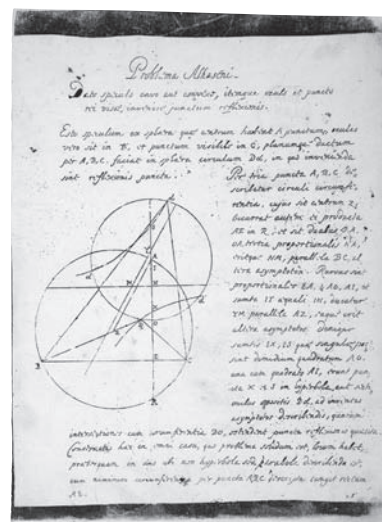 Problema Alhaseni.
Dato speculo cavo aut convexo, itemque oculo et puncto
rei visæ, invenire punctum reflexionis.
Esto speculum ex sphæra quæ centrum habeat A punctum, oculus
vero sit in B, et punctum visibile in C, planumque ductum
per A, B, C. faciat in sphæra circulum Dd, in quo invenienda
sint reflexionis puncta.
Per tria puncta A, B, C. de-
scribatur circuli circumfe-
rentia, cujus sit centrum Z,
occurrat autem ei producta
AE in R. et sit duabus RA,
OA tertia proportionalis NA,
sitque NM, parallela BC, al-
tera asymptoton. Rursus sint
proportionales EA, ½ AO, AI, et
sumta IY æquali IN, ducatur
YM parallela AZ, eaque erit
altera asymptotos. Denique
sumtis IX, IS quæ singulæ pos-
sint dimidium quadratum AO,
una cum quadrato AI, erunt pun-
cta X et S in hyperbola, aut
oppositis Dd, ad inventas
asymptotos describendis, quarum
intersectiones cum circumferentia DO, ostendent puncta reflexionis quæsita.
Constructio hæc in omni casu, quo problema solidum est, locum habet,
præterquam in uno ubi non hyperbola sed parabole describenda est,
cum nimirum circumferentia per puncta ABC descripta tangit rectam
AE.